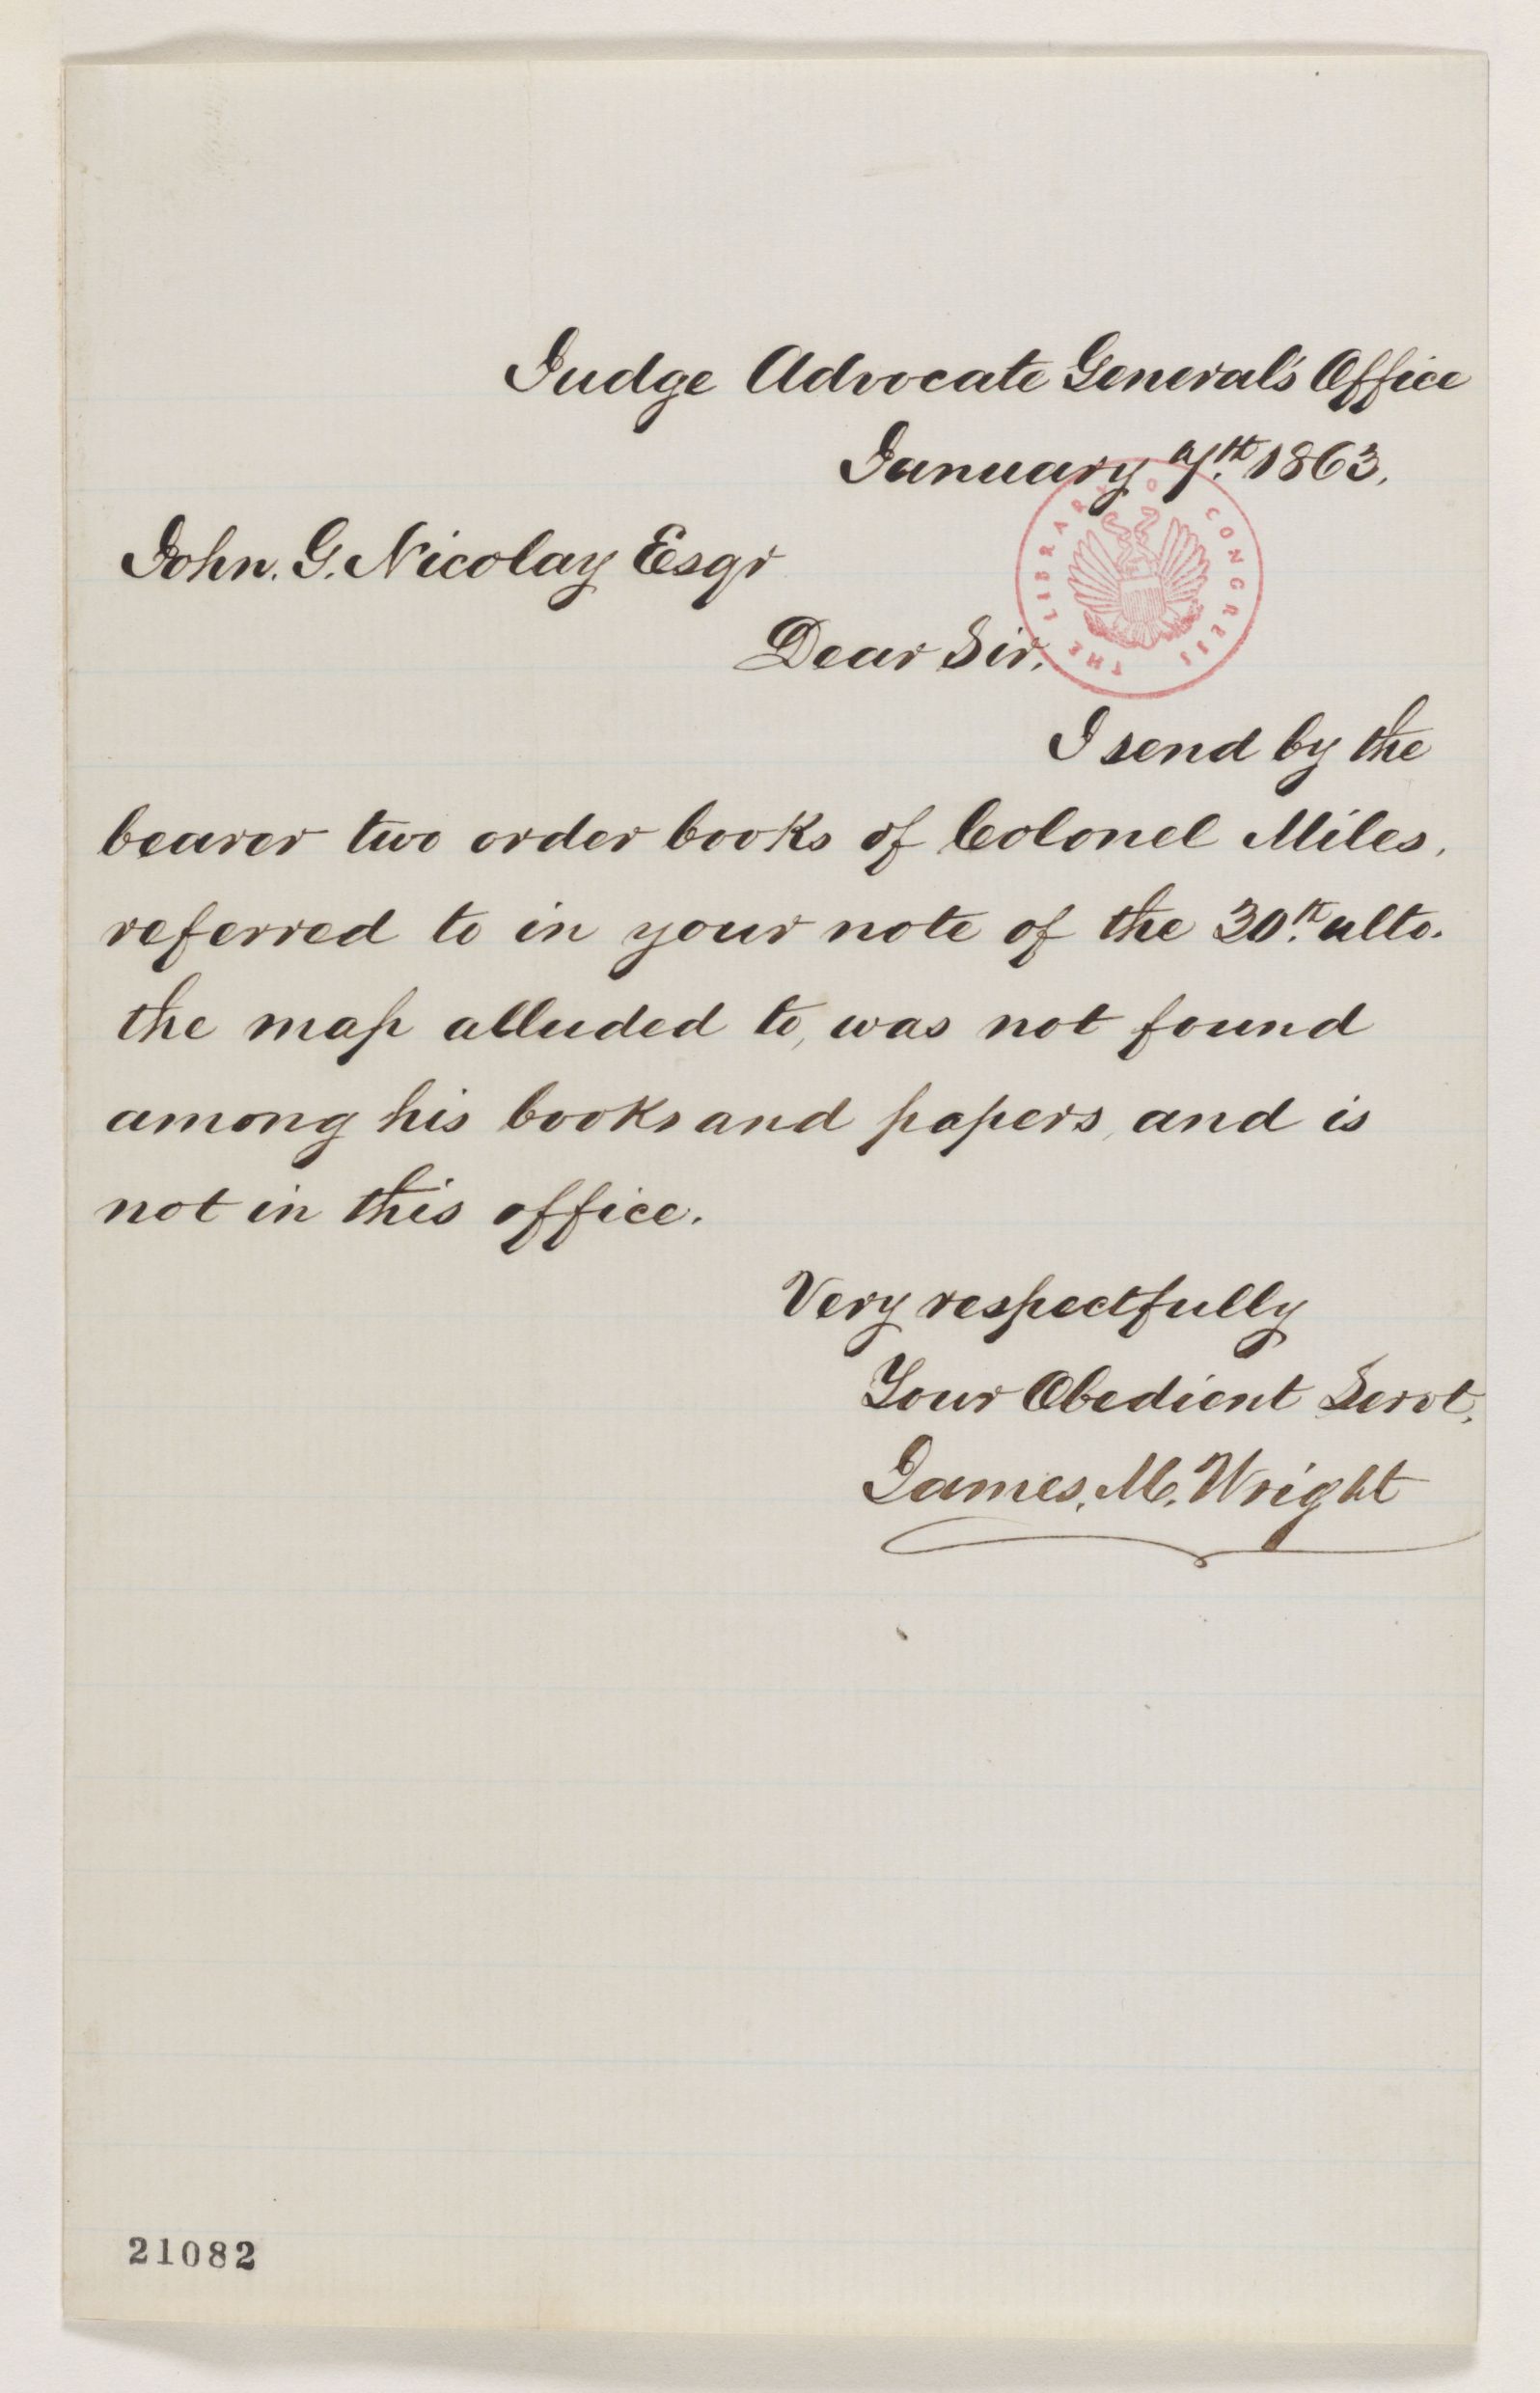 Judge Advocate General's Office
January 7th. 1863.
John. G. Nicolay Esqr
Dear Sir,
THE LIBRARY OF CONGRESS
I send by the
bearer two order books of Colonel Miles,
referred to in your note of the 30th. ulto.
the map alluded to, was not found
among his books and papers, and is
not in this office.
Very respectfully
Your Obedient Servt,
James. M. Wright
21082